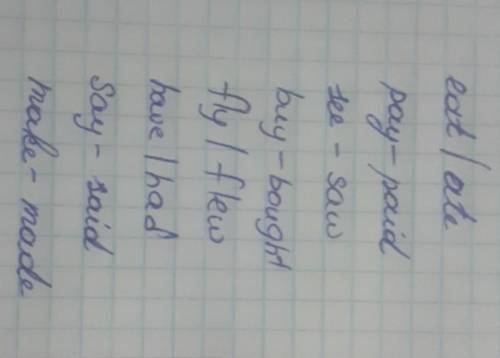 eat / ate
pay - paid
see - saw
buy - bought
fly / flew
have / had
Say - said
make - made